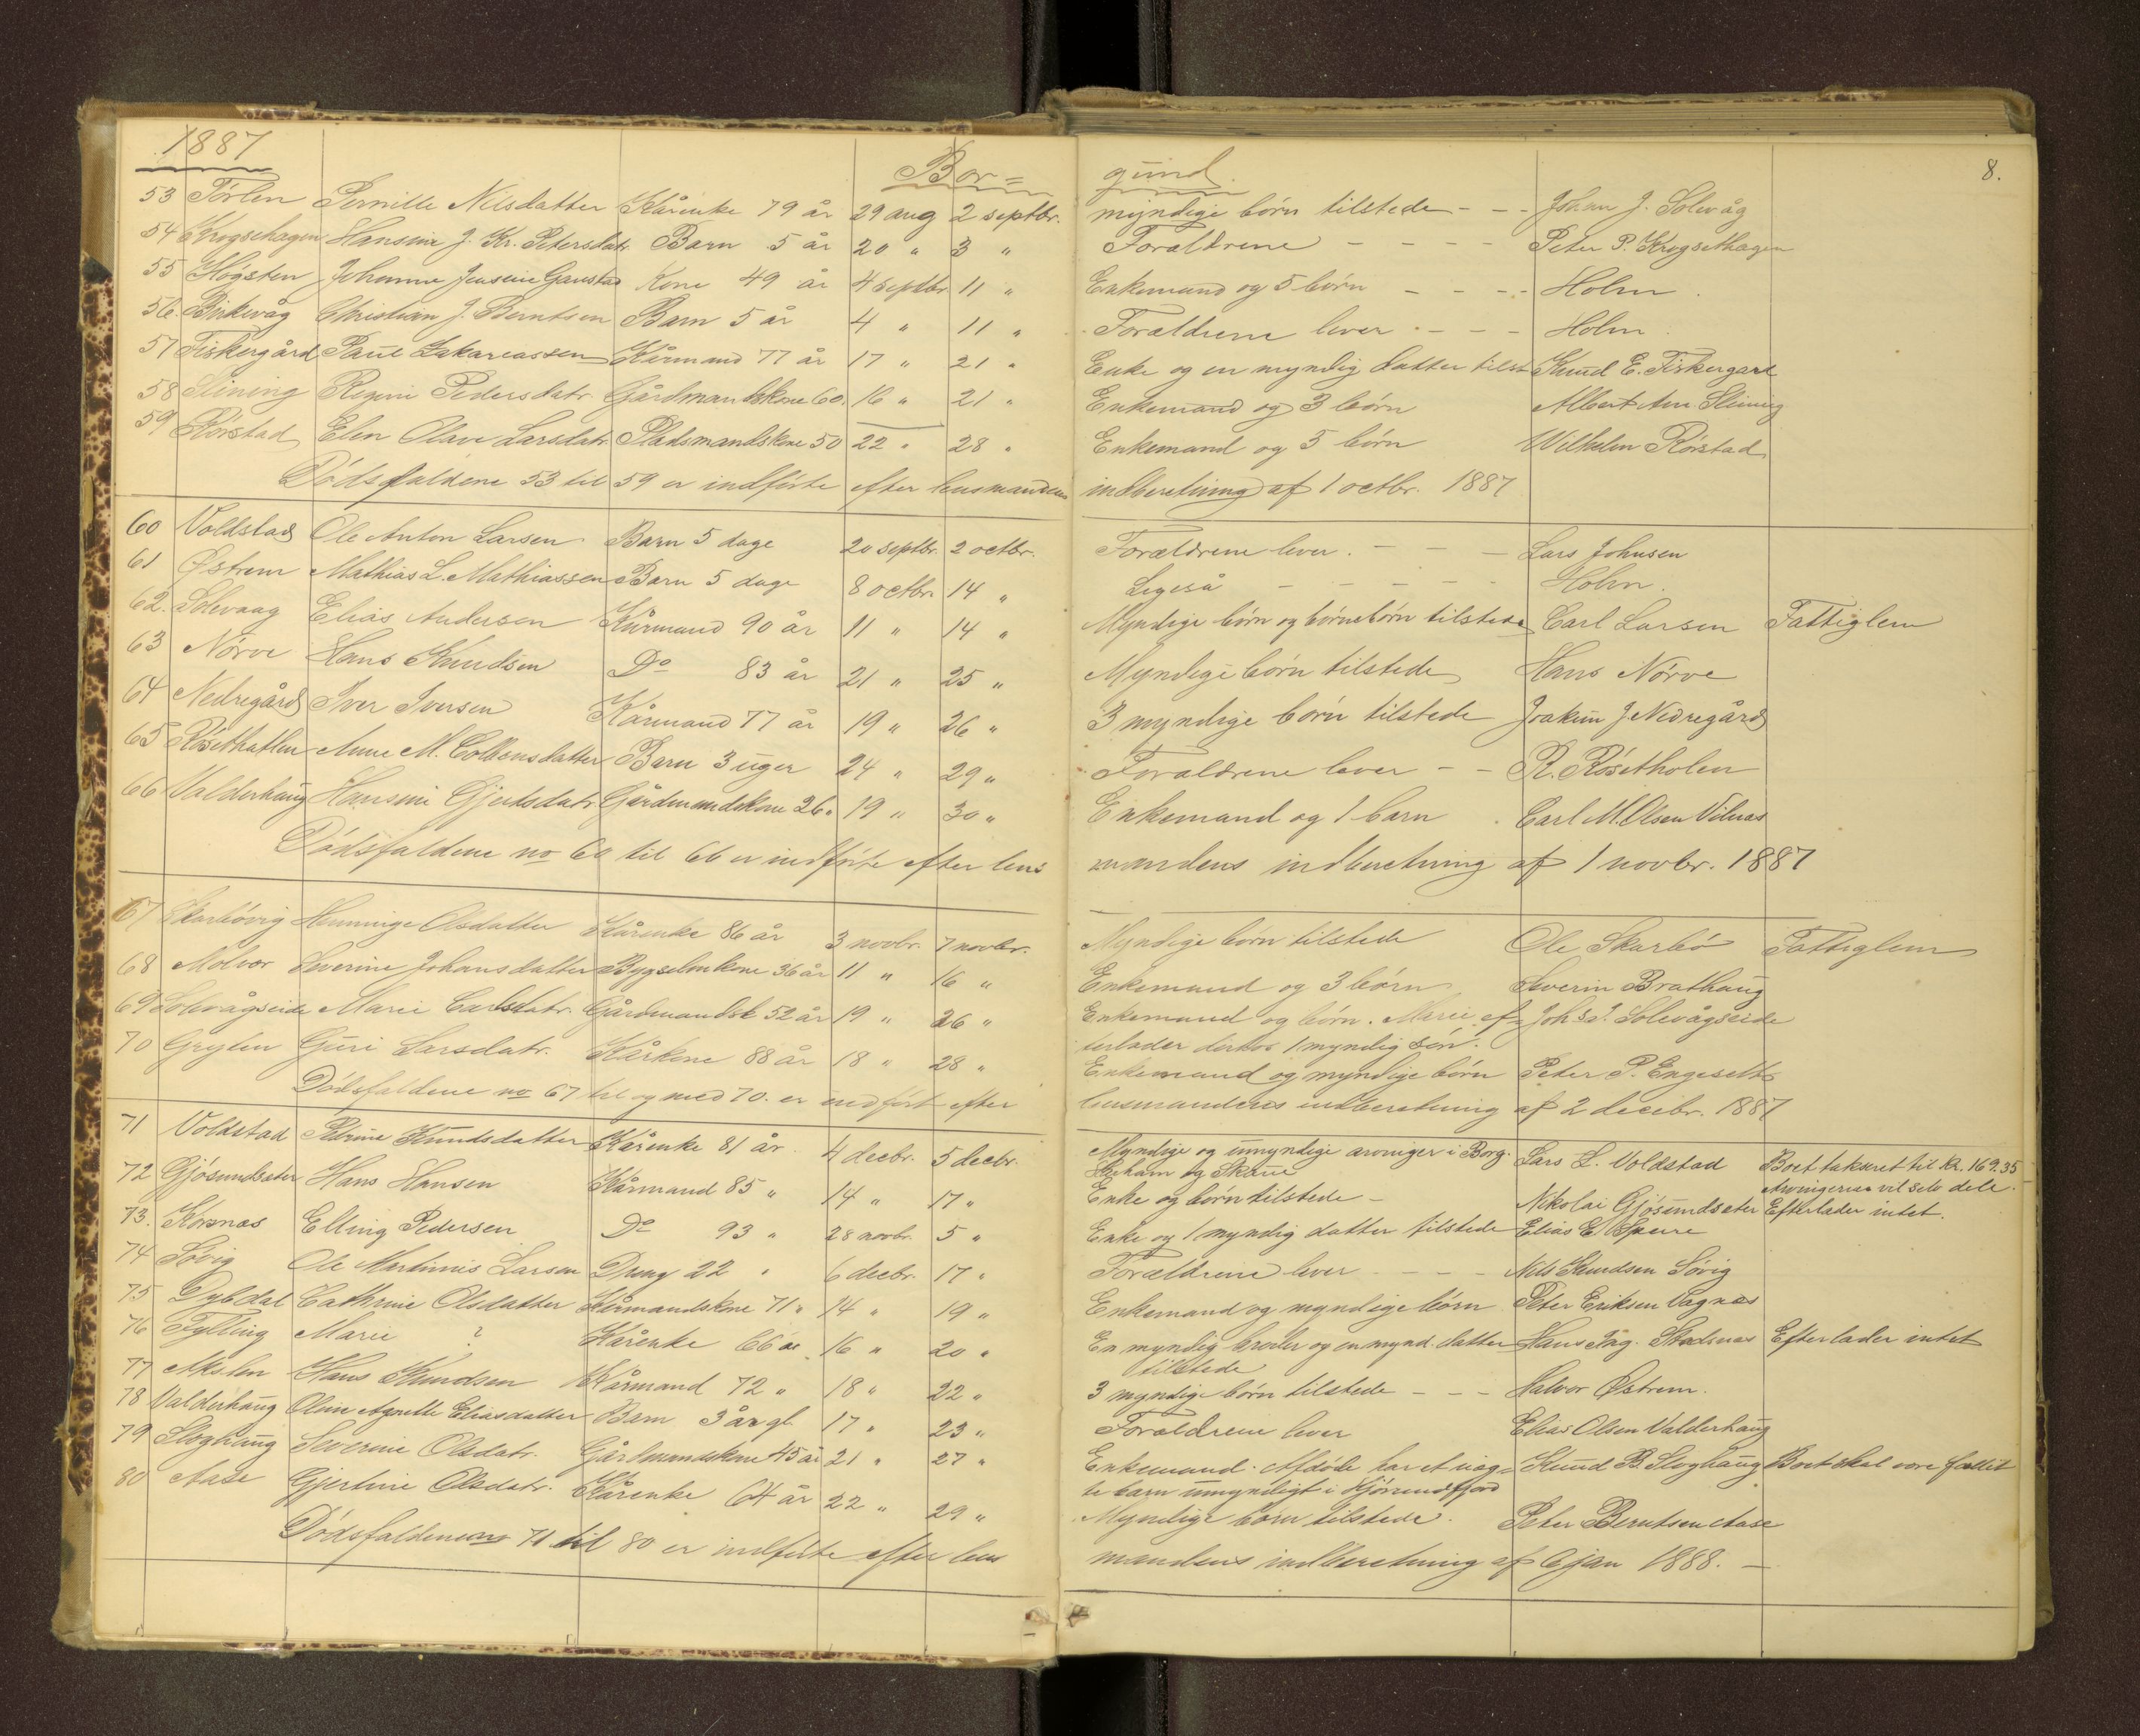 1887
Bor=
gund.
8.
53 Tørlen Pernille Nilsdatter Kårenke 79 år 29 aug 2 septbr. myndige børn tilstede - - - Johan J. Solevåg
54 Krogsethagen Hansine J. Kr. Petersdatr. Barn 5 år 20 " 3 " Forældrene - - - - Peter P. Krogsethagen
55 Høgsten Johanne Jensine Gaustad Kone 49 år 4 septbr 11 " Enkemand og 5 børn - - - - Holm.
56. Birkevåg Christian J. Berntsen Barn 5 år 4 " 11 " Forældrene lever - - - Holm.
57 Fiskergård Paul Zakariassen Kårmand 77 år 17 " 21 " Enke og en myndig datter tilst Knud E. Fiskergård
58 Slining Regine Pedersdatr. Gårdmandskone 60. 16 " 21 " Enkemand og 3 børn Albert Slining
59 Rørstad Elen Olave Larsdatr. Pladsmandskone 50 22 " 28 " Enkemand og 5 børn Wilhelm Rørstad
Dødsfaldene 53 til 59 er indførte efter lensmandens indberetning af 1 octbr. 1887
60 Voldstad Ole Anton Larsen Barn 5 dage 20 septbr. 2 octbr. Forældrene lever. - - - Lars Johnsen
61 Østrem Mathias L. Mathiassen Barn 5 dage 8 octbr. 14 " Ligeså - - - - - Holm.
62. Solevaag Elias Andersen Kårmand 90 år 11 " 14 " Myndige børn og børnebørn tilstede Carl Larsen Fattiglem
63 Nørve Hans Knudsen Do 83 år 21 " 25 " Myndige børn tilstede Hans Nørve
64 Nedregård Iver Iversen Kårmand 77 år 19 " 26 " 3 myndige børn tilstede Joakim J Nedregård
65 Røsethatlen Anne M. Barn 3 uger 24 " 29 " Forældrene lever - - R. Røsetholen
66 Valderhaug Hansine Gjertsdatr. Gårdmandskone 26. 19 " 30 " Enkemand og 1 barn Carl M. Olsen Vilnæs
Dødsfaldene no 60 til 66 er indførte efter lens mandens indberetning af 1 novbr. 1887
67 Skarbøvig Olsdatter Kårenke 86 år 3 novbr. 7 novbr. Myndige børn tilstede Ole Skarbø Fattiglem
68 Molvær Severine Johansdatter Bygselmkone 36 år 11 " 16 " Enkemand og 3 børn Severin Brathaug
69 Solevågseide Marie Carlsdatr. Gårdmandsk 52 år 19 " 26 " Enkemand og børn. Marie ef= Johs J. Solevågseide
terlader derhos 1 myndig søn.
70 Grytten Guri Larsdatr. Kårkone 88 år 18 " 28 " Enkemand og myndige børn Peter P. Engeseth
Dødsfaldene no 67 til og med 70. er indført efter lensmandens indberetning af 2 decbr. 1887
71 Voldstad Petrine Knudsdatter Kårenke 81 år 4 decbr. 5 decbr. Myndige og umyndige arvinger i Borg. Lars L. Voldstad Boet takseret til Kr. 169.35
Haram og Skaue Arvingerne vil selv dele.
72 Gjøsundsæter Hans Hansen Kårmand 85 " 14 " 17 " Enke og børn tilstede - Nikolai Gjøsundsæter Efterlader intet.
73. Korsnæs Elling Pedersen Do 93 " 28 novbr. 5 " Enke og 1 myndig datter tilstede Elias E Sperre
74 Søvig Ole Martinus Larsen Dreng 22 " 6 decbr. 17 " Forældrene lever - - - - Nils Knudsen Søvig
75 Dybdal Cathrine Olsdatter Kårmandskone 71 " 14 " 19 " Enkemand og myndige børn Peter Eriksen Vagnæs
76 Fylling Marie ? Kårenke 66 år 16 " 20 " En myndig broder og en mynd. datter Hans Stadsnæs Efterlader intet
tilstede
77 Akslen Hans Knudsen Kårmand 72 " 18 " 22 " 3 myndige børn tilstede - - - Halvor Østrem.
78 Valderhaug Oline Agnette Eliasdatter Barn 3 år gl. 17 " 23 " Forældrene lever Elias Olsen Valderhaug
79 Sloghaug Severine Olsdatr. Gårdmandskone 45 år 21 " 27 " Enkemand. Afdøde har et uæg= Knud B. Sloghaug Boet skal være fallit
te barn umyndigt i Hjørundfjord
80 Aase Gjertine Olsdatr. Kårenke 64 år 22 " 29 " Myndige børn tilstede. Peter Berntsen Aase
Dødsfaldene no 71 til 80 er indførte efter lens mandens indberetning af 6 jan 1888. -